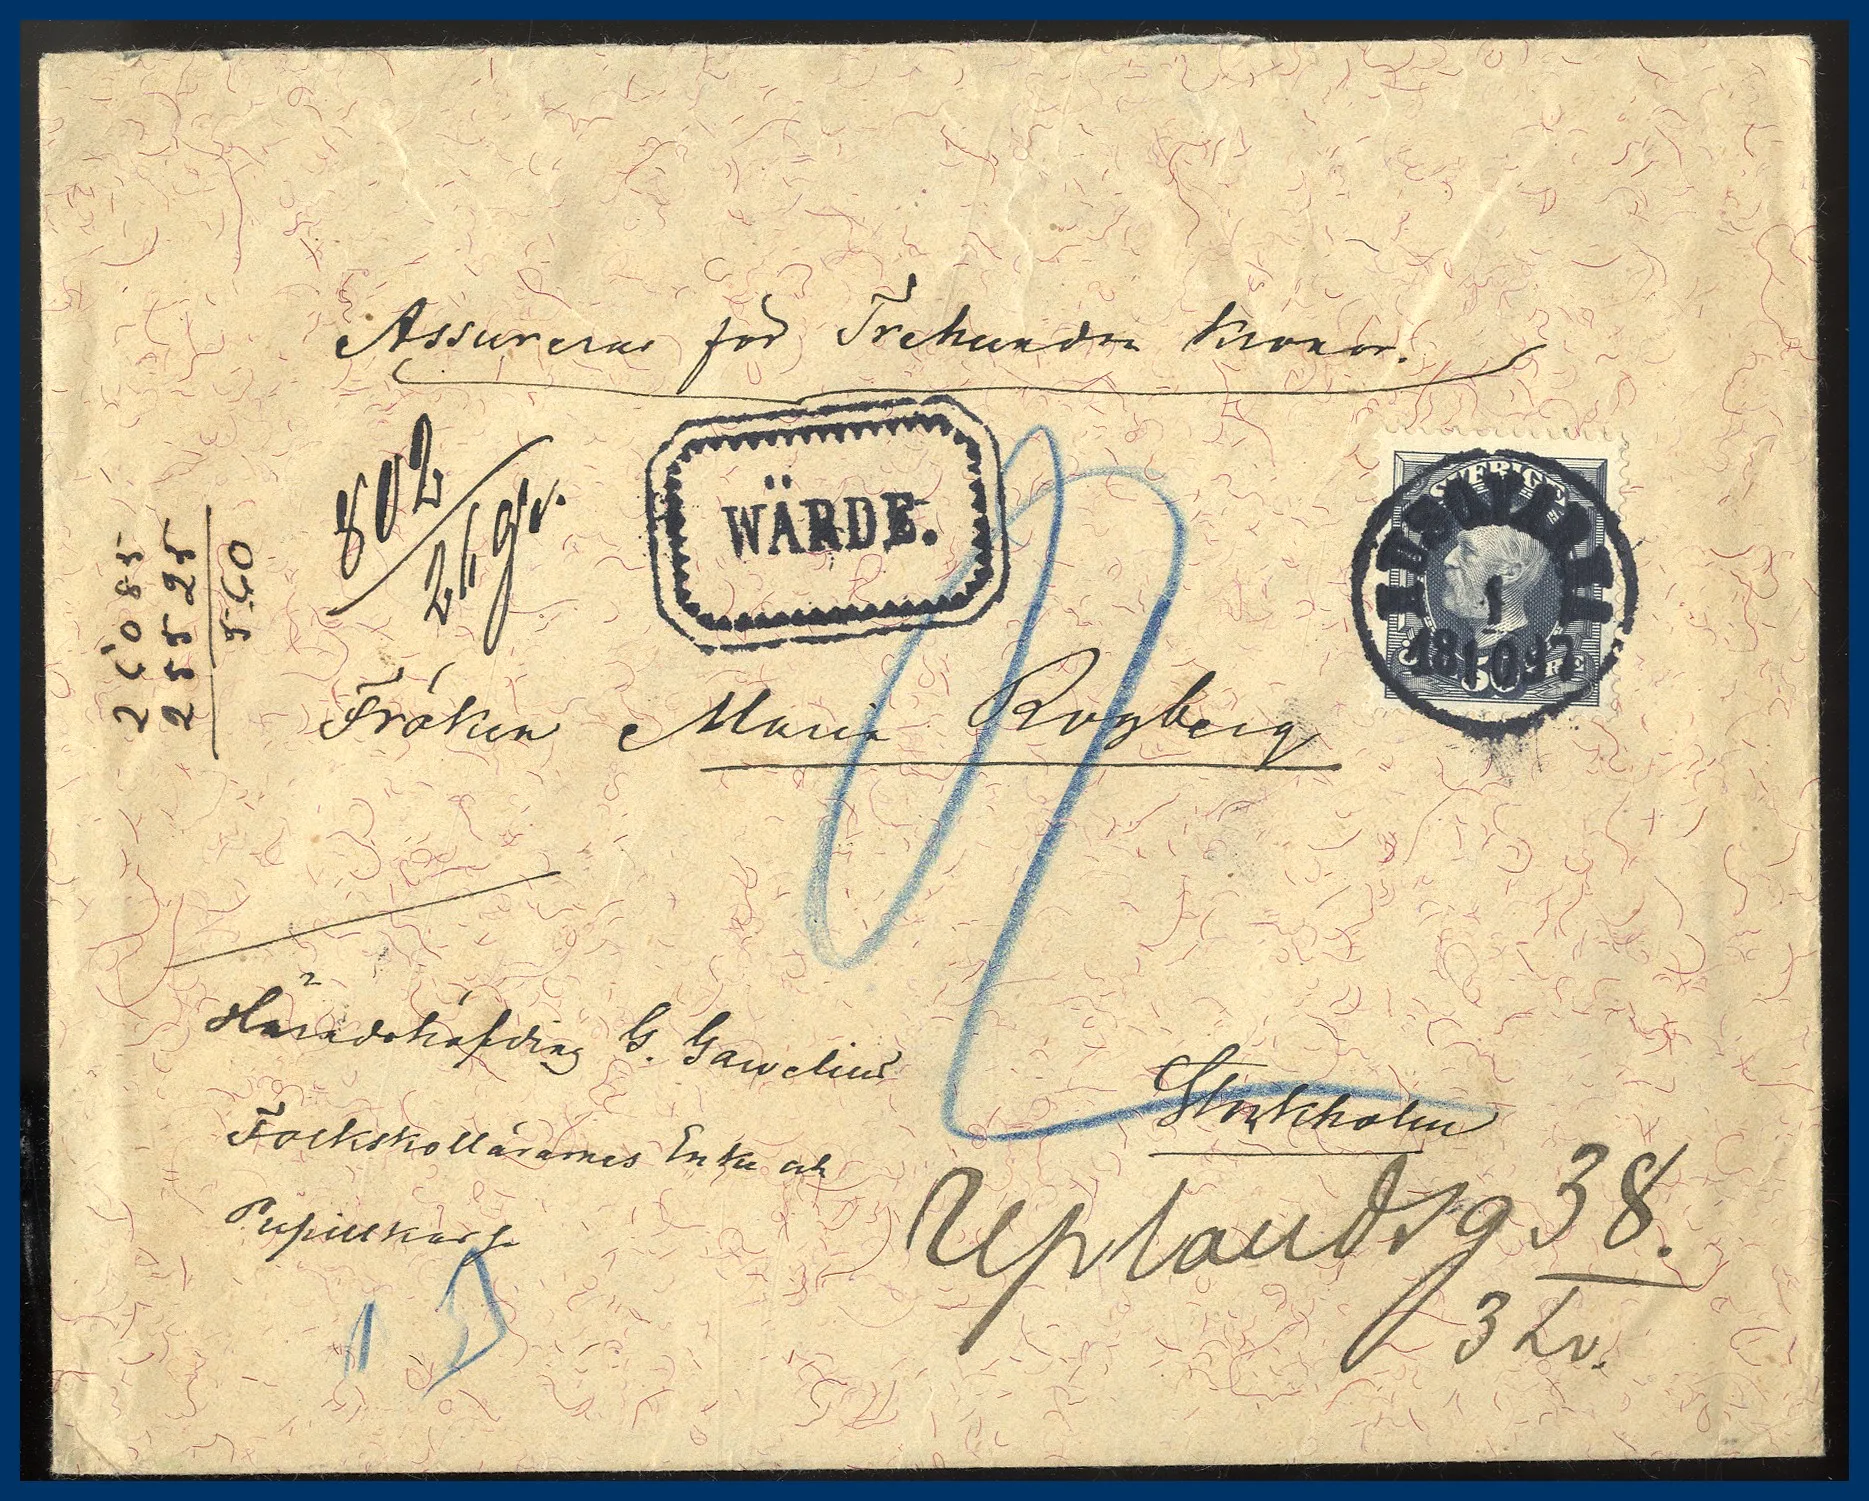 Assureras för Trehundra Kronor.
802
25 gr.
WÄRDE.
SVERIGE
50 ÖRE
1
1897
26085
25525
560
Fröken Maria Rogberg
Häradshöfding G. Gawelius
Folkskollärarnes Enke och
Pupillkassa
Stockholm
Uplandsg 38.
3 tr.